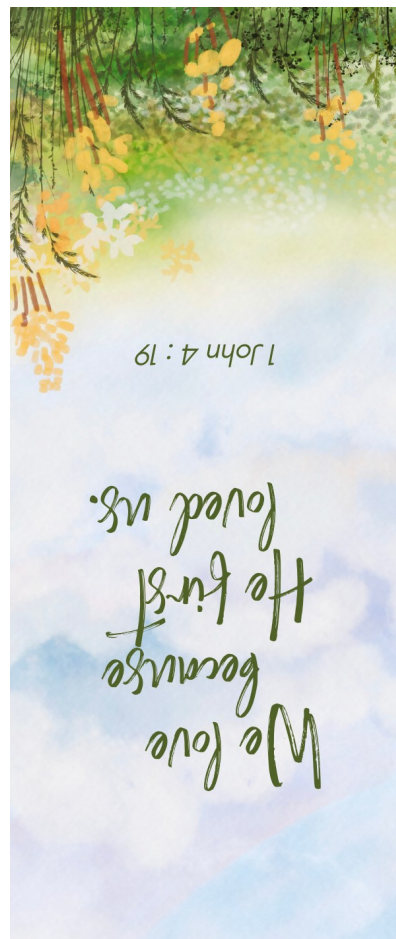 We love
because
He first
loved us.
1 John 4 : 19